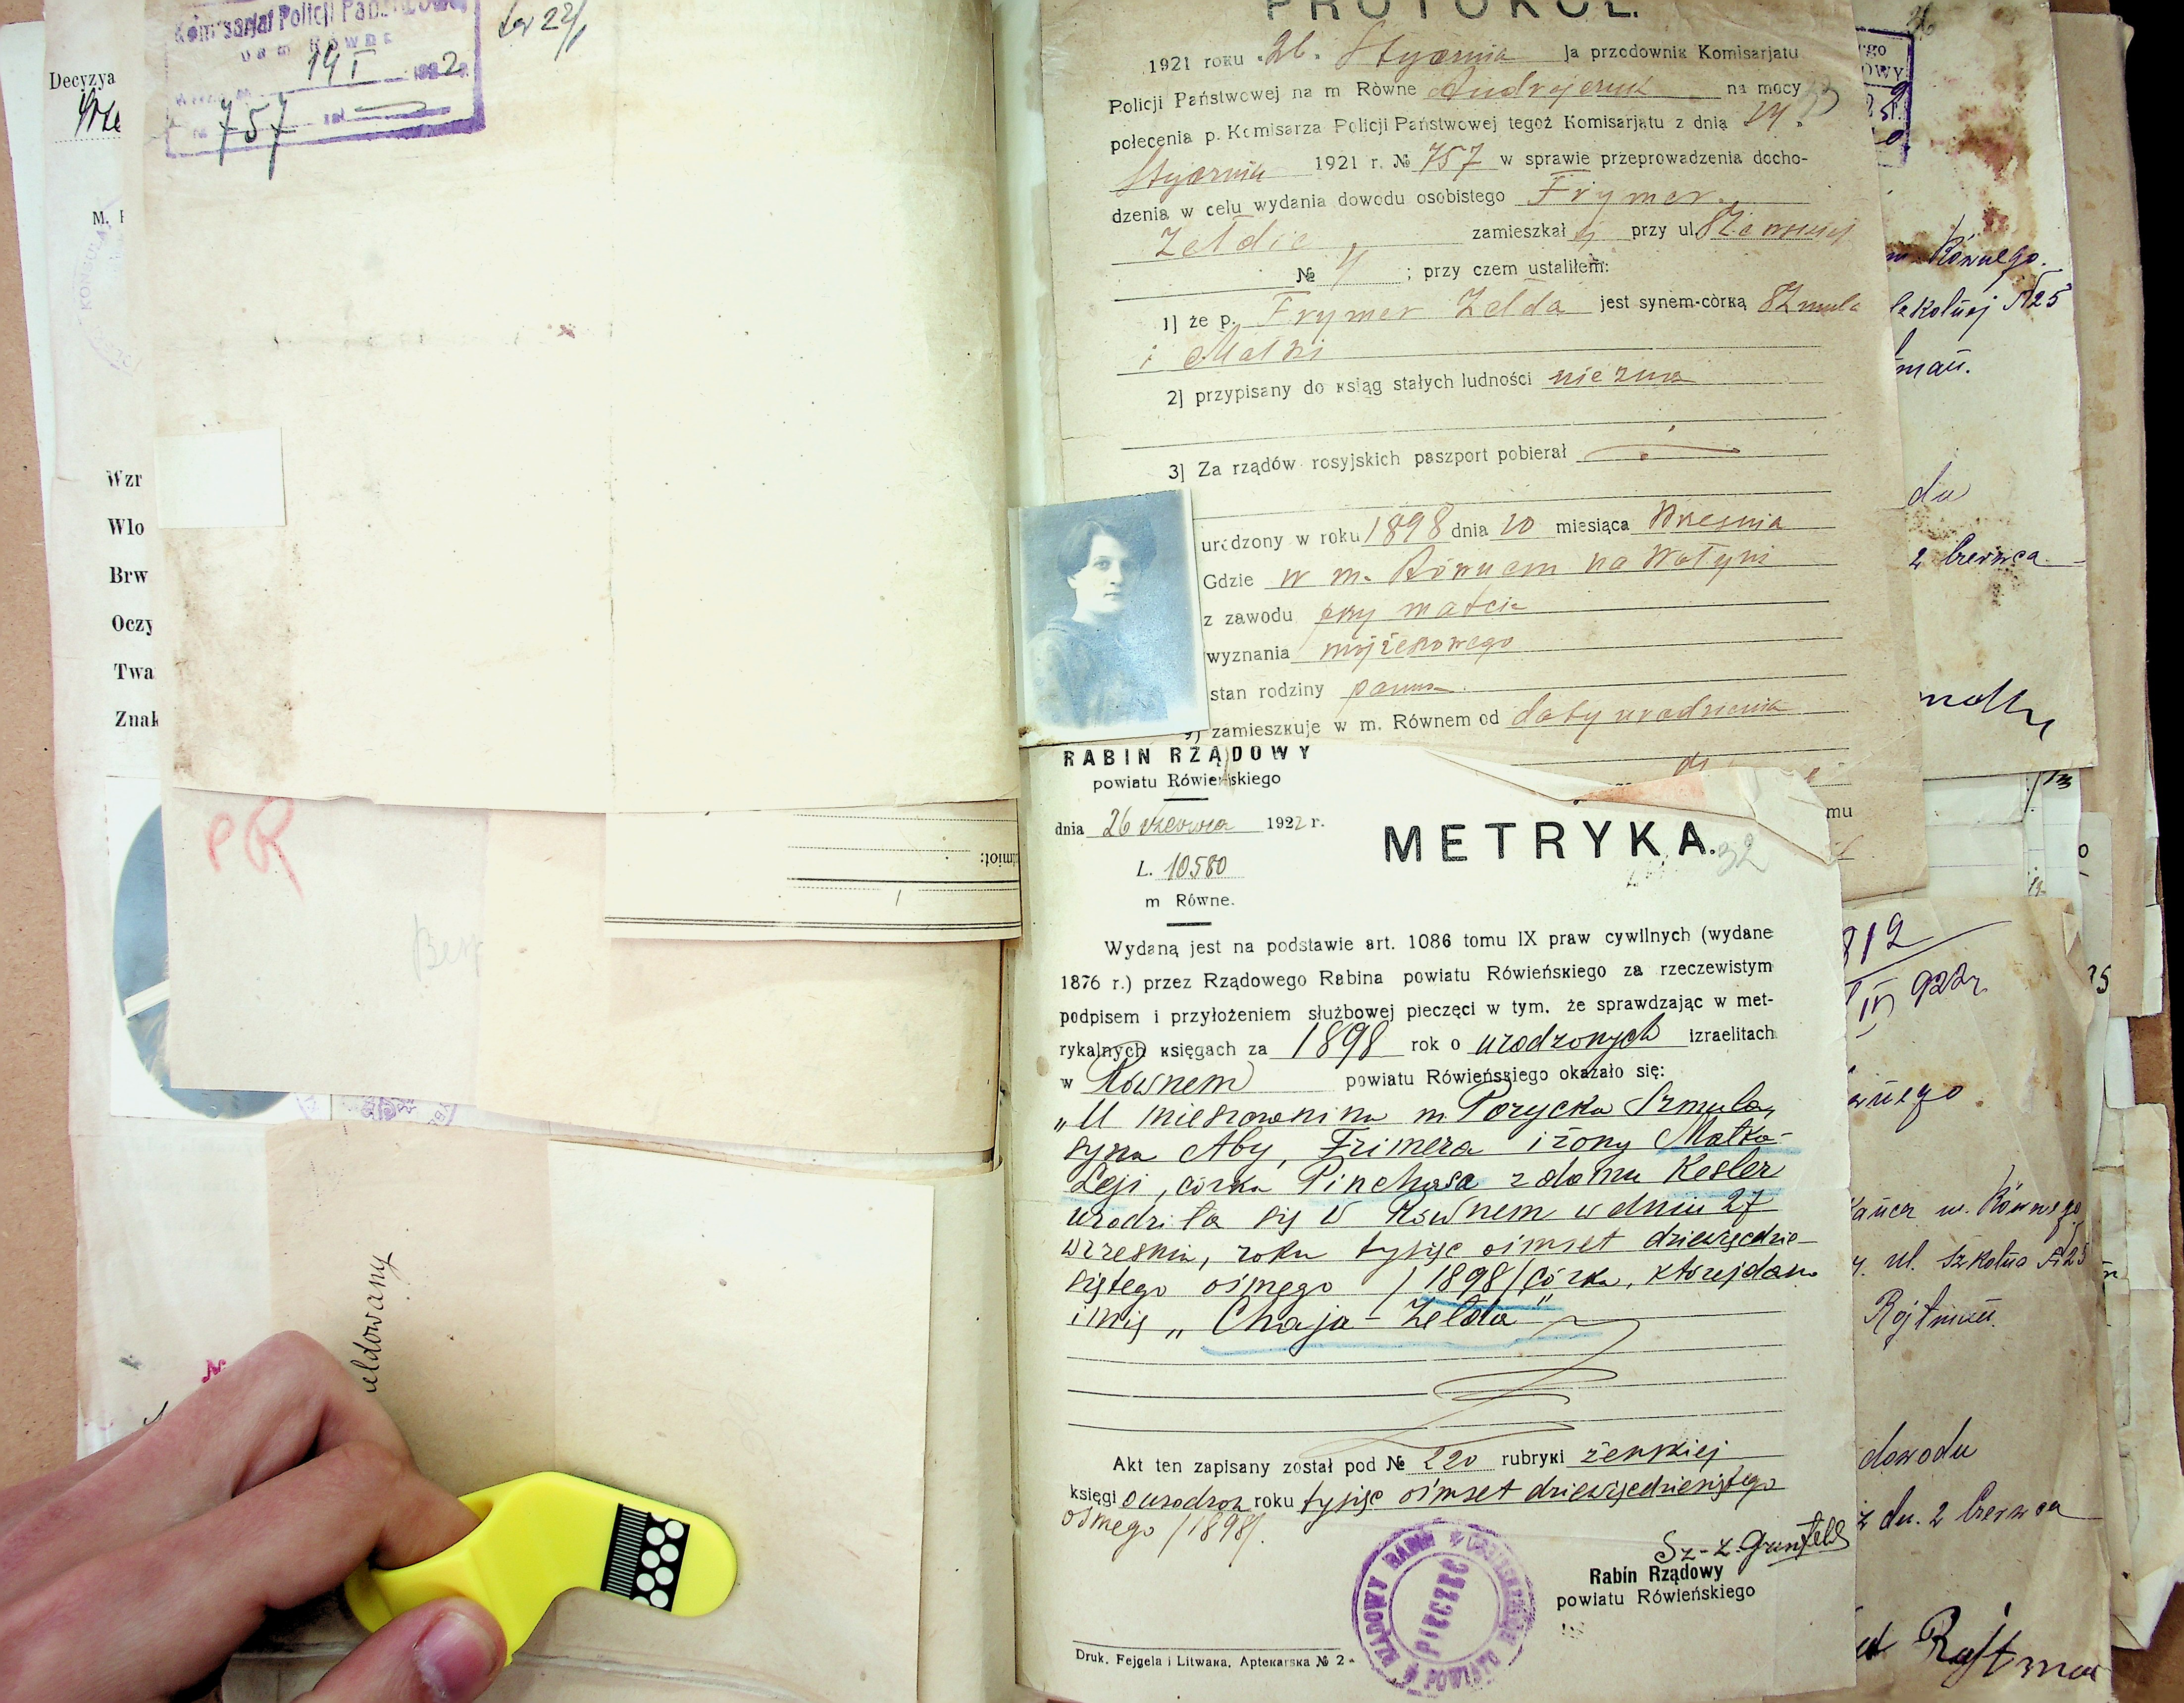 Decyzya
Komisarjat Policji Państwowej
na m Równe
19 I 1922
№ 757
M.
Wzr
Wlo
Brw
Oczy
Twa
Znak
PR
eldowany
PROTOKÓŁ.
1921 roku 26. Stycznia Ja przodownik Komisarjatu
Policji Państwowej na m Równe Andrejczuk na mocy
polecenia p. Komisarza Policji Państwowej tegoż Komisarjatu z dnia 24.
Stycznia 1921 r. № 757 w sprawie przeprowadzenia docho-
dzenia w celu wydania dowodu osobistego Frymer
Zełdie zamieszkał ej przy ul.
№ 4 ; przy czem ustaliłem:
1] że p. Frymer Zełda jest synem-córką Szmula
i Małki
2] przypisany do ksiąg stałych ludności nie zna
3] Za rządów rosyjskich paszport pobierał
urodzony w roku 1898 dnia 20 miesiąca Września
Gdzie w m. Równem na Wołyni
z zawodu przy matce
wyznania mojżeszowego
stan rodziny panna.
9) zamieszkuje w m. Równem od daty urodzenia
mu
RABIN RZĄDOWY
powiatu Rówieńskiego
dnia 26 czerwca 1922 r.
L. 10580
m Równe.
METRYKA.
32
Wydaną jest na podstawie art. 1086 tomu IX praw cywilnych (wydane
1876 r.) przez Rządowego Rabina powiatu Rówieńskiego za rzeczewistym
podpisem i przyłożeniem służbowej pieczęci w tym, że sprawdzając w met-
rykalnych księgach za 1898 rok o urodzonych izraelitach
w Równem powiatu Rówieńskiego okazało się:
„U mieszczanina m Porycka Szmula,
syna Aby, Frimera i żony Małka-
Leji, córka Pinchasa z domu Kesler
urodziła się w Równem w dniu 27
września, roku tysiąc ośmset dziewięćdzie-
siątego ósmego /1898/ córka, której dano
imię „Chaja-Zełda"
Akt ten zapisany został pod № 220 rubryki żenskiej
księgi o urodzon roku tysiąc ośmset dziewięćdziesiątego
ósmego /1898/.
Sz-Z. Grunfeld
Rabin Rządowy
powiatu Rówieńskiego
RZĄDOWY RABIN
PIECZĘĆ
Druk. Fejgela i Litwaka, Aptekarska № 2
m. Równego.
Szkolnej №25
du
2 Czerwca
812
IV 922 r.
m. Równego
ul. Szkolna №25
Rojtman
dowodu
z dn. 2 Czerwca
Rojtman